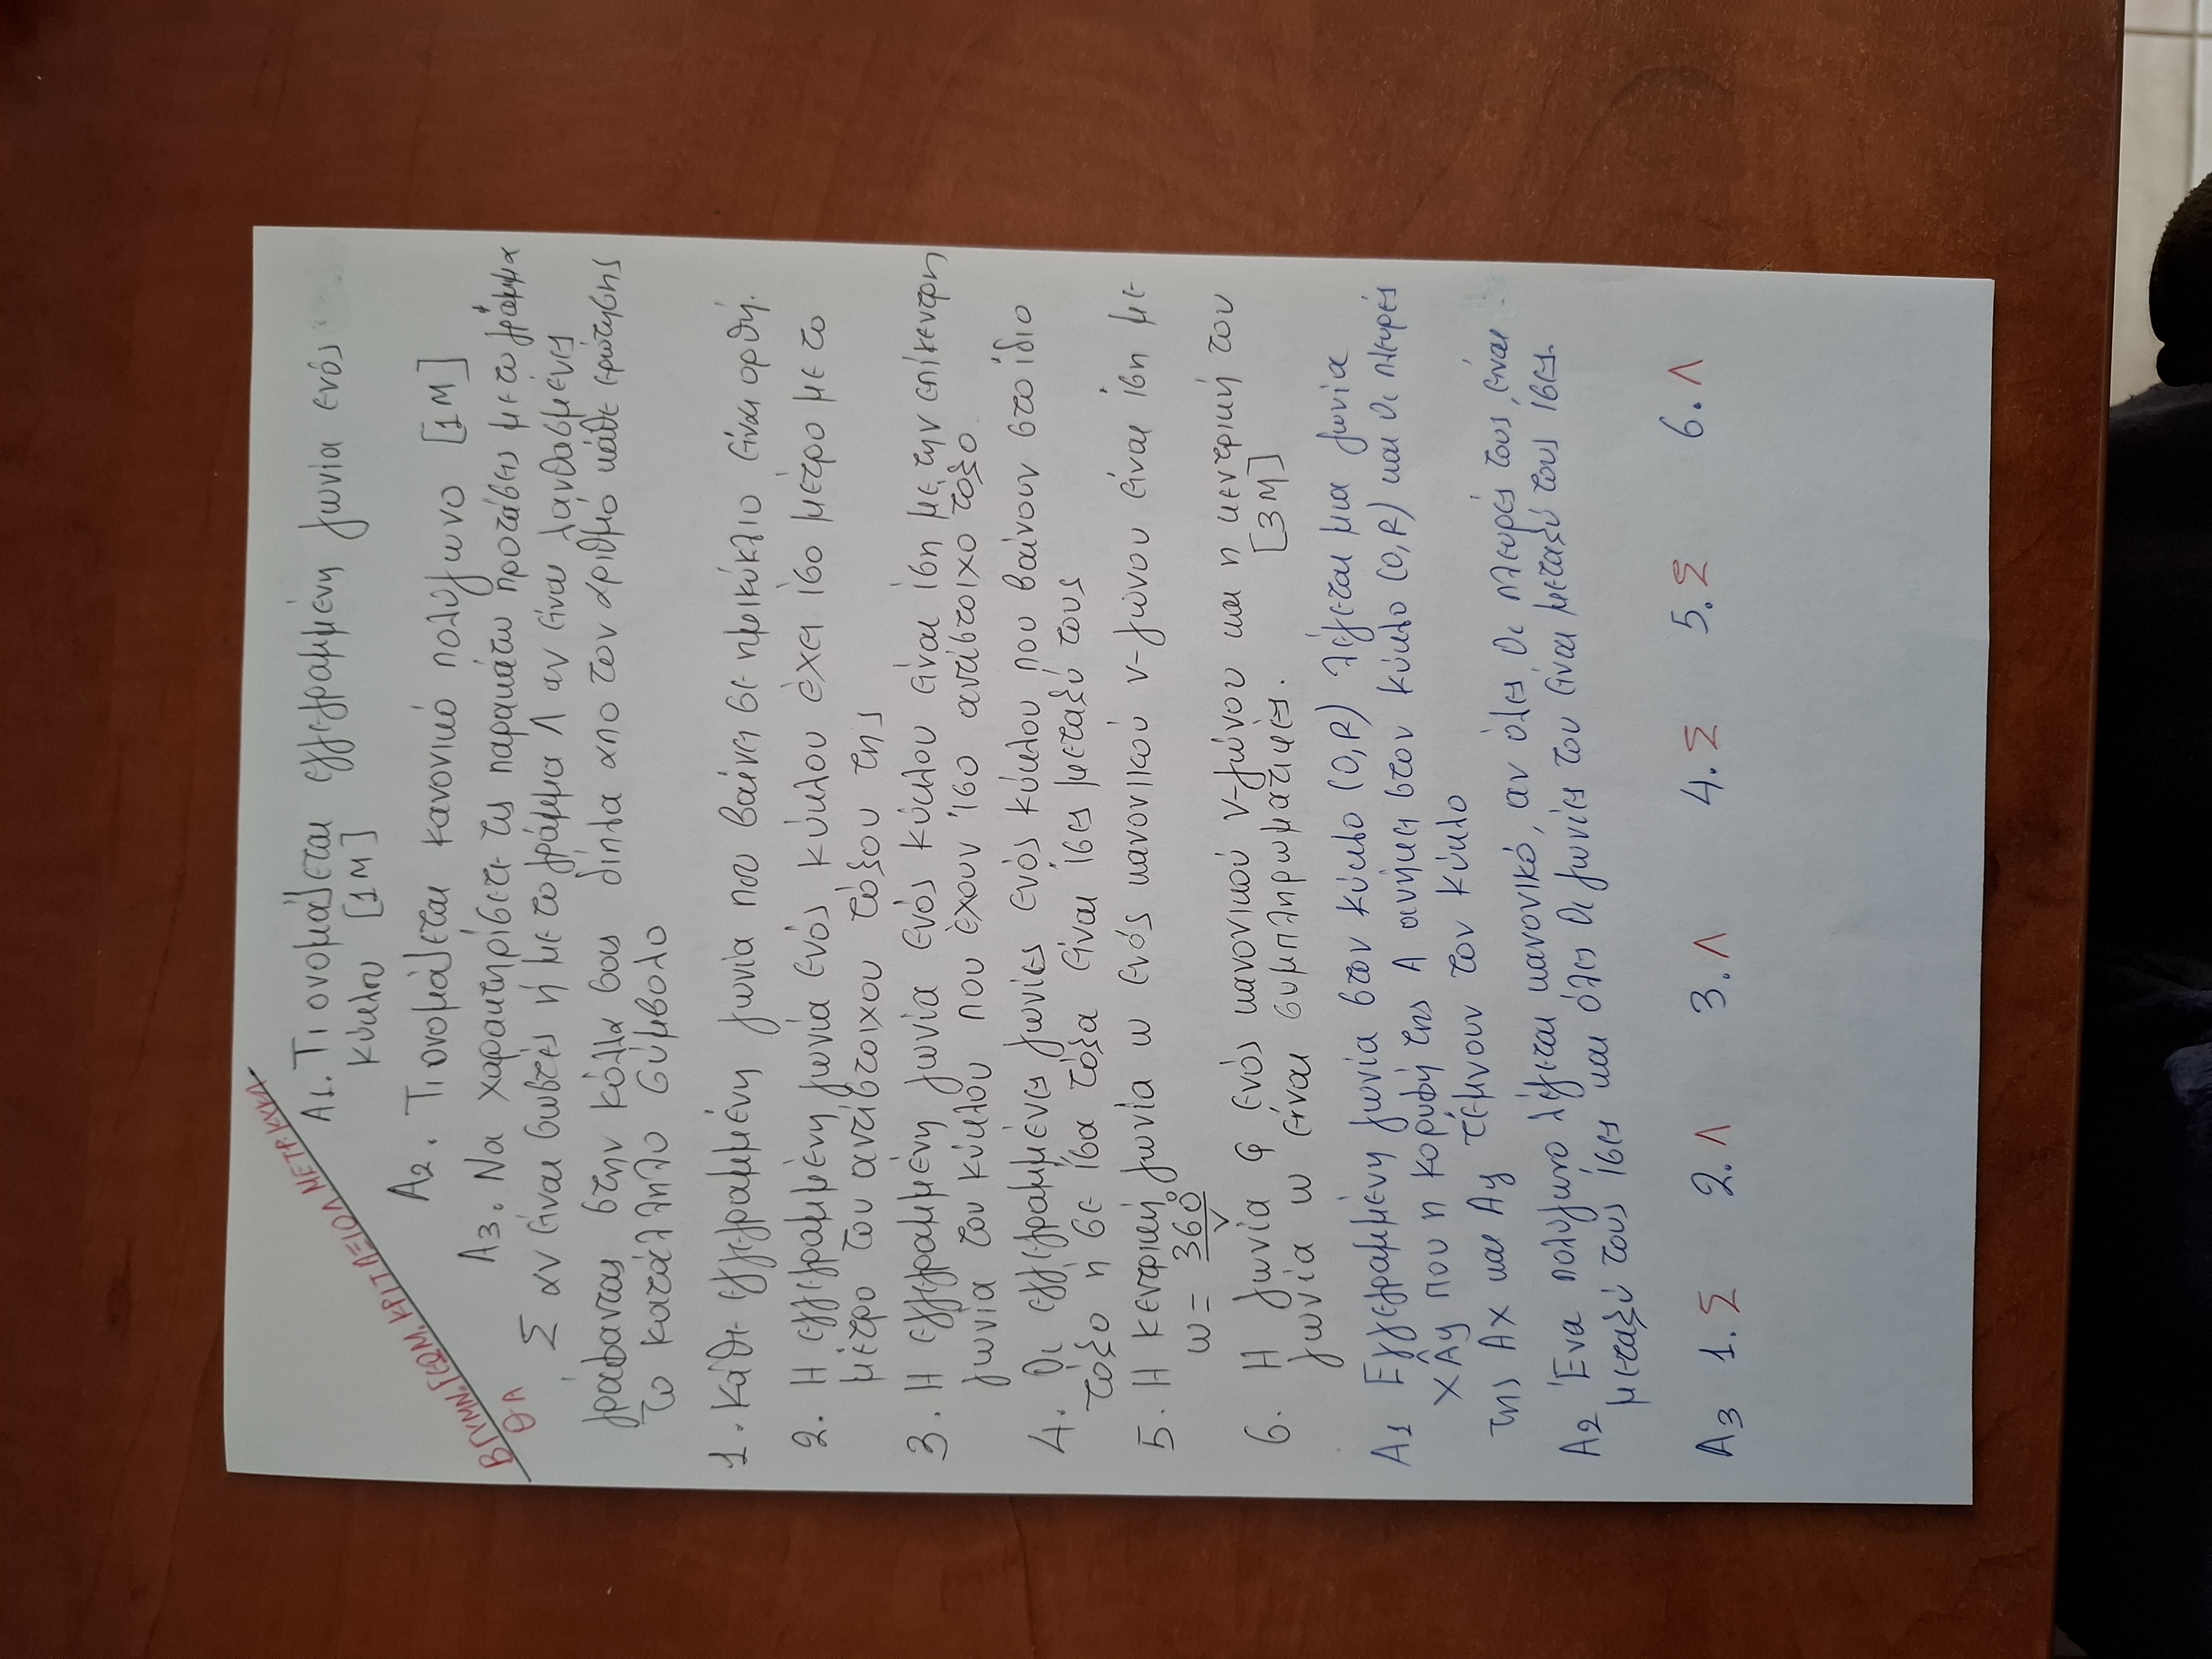 Β ΓΥΜΝ. ΓΕΩΜ. ΚΡΙΤ ΑΞΙΟΛ ΜΕΤΡ. ΚΥΚΛ
ΘΛ
Α1. Τι ονομάζεται εγγεγραμμένη γωνία ενός
κύκλου [1Μ]
Α2. Τι ονομάζεται κανονικό πολύγωνο [1Μ]
Α3. Να χαρακτηρίσετε τις παρακάτω προτάσεις με το γράμμα
Σ αν είναι σωστές ή με το γράμμα Λ αν είναι λανθασμένες
γράφοντας στην κόλλα σας δίπλα απο τον αριθμό κάθε ερώτησης
το κατάλληλο σύμβολο
1. Κάθε εγγεγραμμένη γωνία που βαίνει σε ημικύκλιο είναι ορθή.
2. Η εγγεγραμμένη γωνία ενός κύκλου έχει ίσο μέτρο με το
μέτρο του αντίστοιχου τόξου της
3. Η εγγεγραμμένη γωνία ενός κύκλου είναι ίση με την επίκεντρη
γωνία του κύκλου που έχουν ίσο αντίστοιχο τόξο.
4. Οι εγγεγραμμένες γωνίες ενός κύκλου που βαίνουν στο ίδιο
τόξο η σε ίσα τόξα είναι ίσες μεταξύ τους
5. Η κεντρική γωνία ω ενός κανονικού ν-γώνου είναι ίση με
ω = 360°/ν
6. Η γωνία φ ενός κανονικού ν-γώνου και η κεντρική του
γωνία ω είναι συμπληρωματικές. [3Μ]
Α1 Εγγεγραμμένη γωνία στον κύκλο (Ο,R) λέγεται μια γωνία
xÂy που η κορυφή της Α ανήκει στον κύκλο (Ο,R) και οι πλευρές
της Αx και Αy τέμνουν τον κύκλο
Α2 Ένα πολύγωνο λέγεται κανονικό, αν όλες οι πλευρές τους, είναι
μεταξύ τους ίσες και όλες οι γωνίες του είναι μεταξύ τους ίσες.
Α3 1. Σ 2. Λ 3. Λ 4. Σ 5. Σ 6. Λ